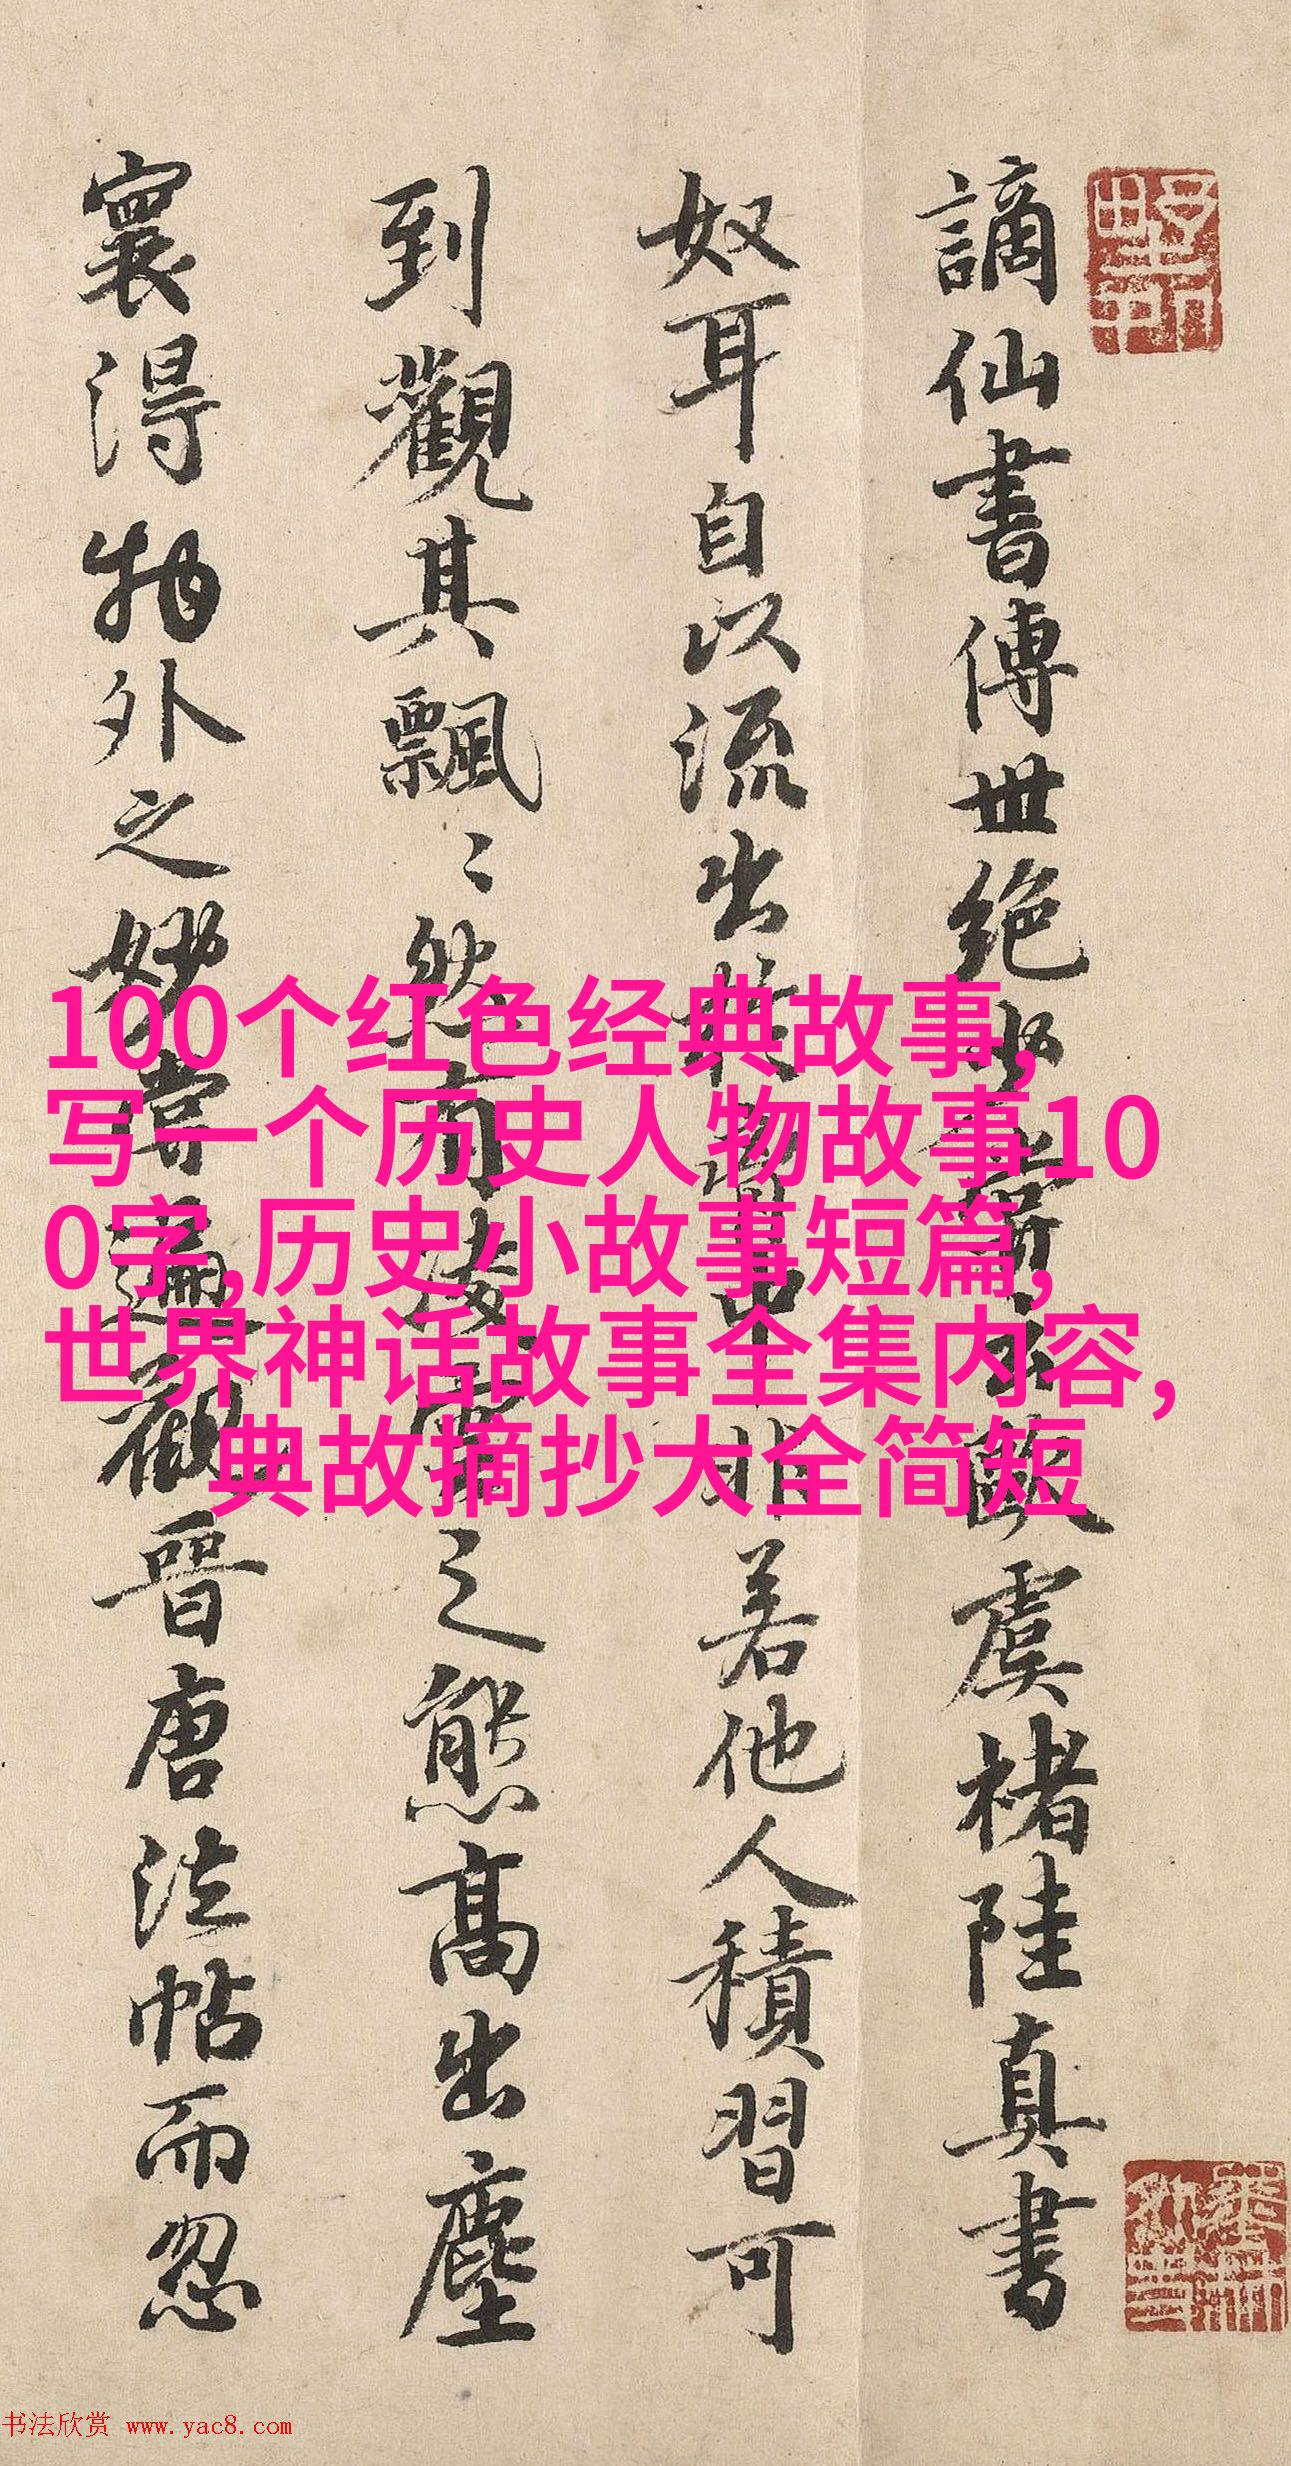 謫仙書傳世絕
虞褚陸真書
奴耳自以流出
若他人積習可
到觀其飄〻然有
之態高出塵
寰得物外之妙嘗遍觀晉唐法帖而忽
100个红色经典故事,
写一个历史人物故事10
0字,历史小故事短篇,
世界神话故事全集内容,
典故摘抄大全简短
书法欣赏 www.yac8.com